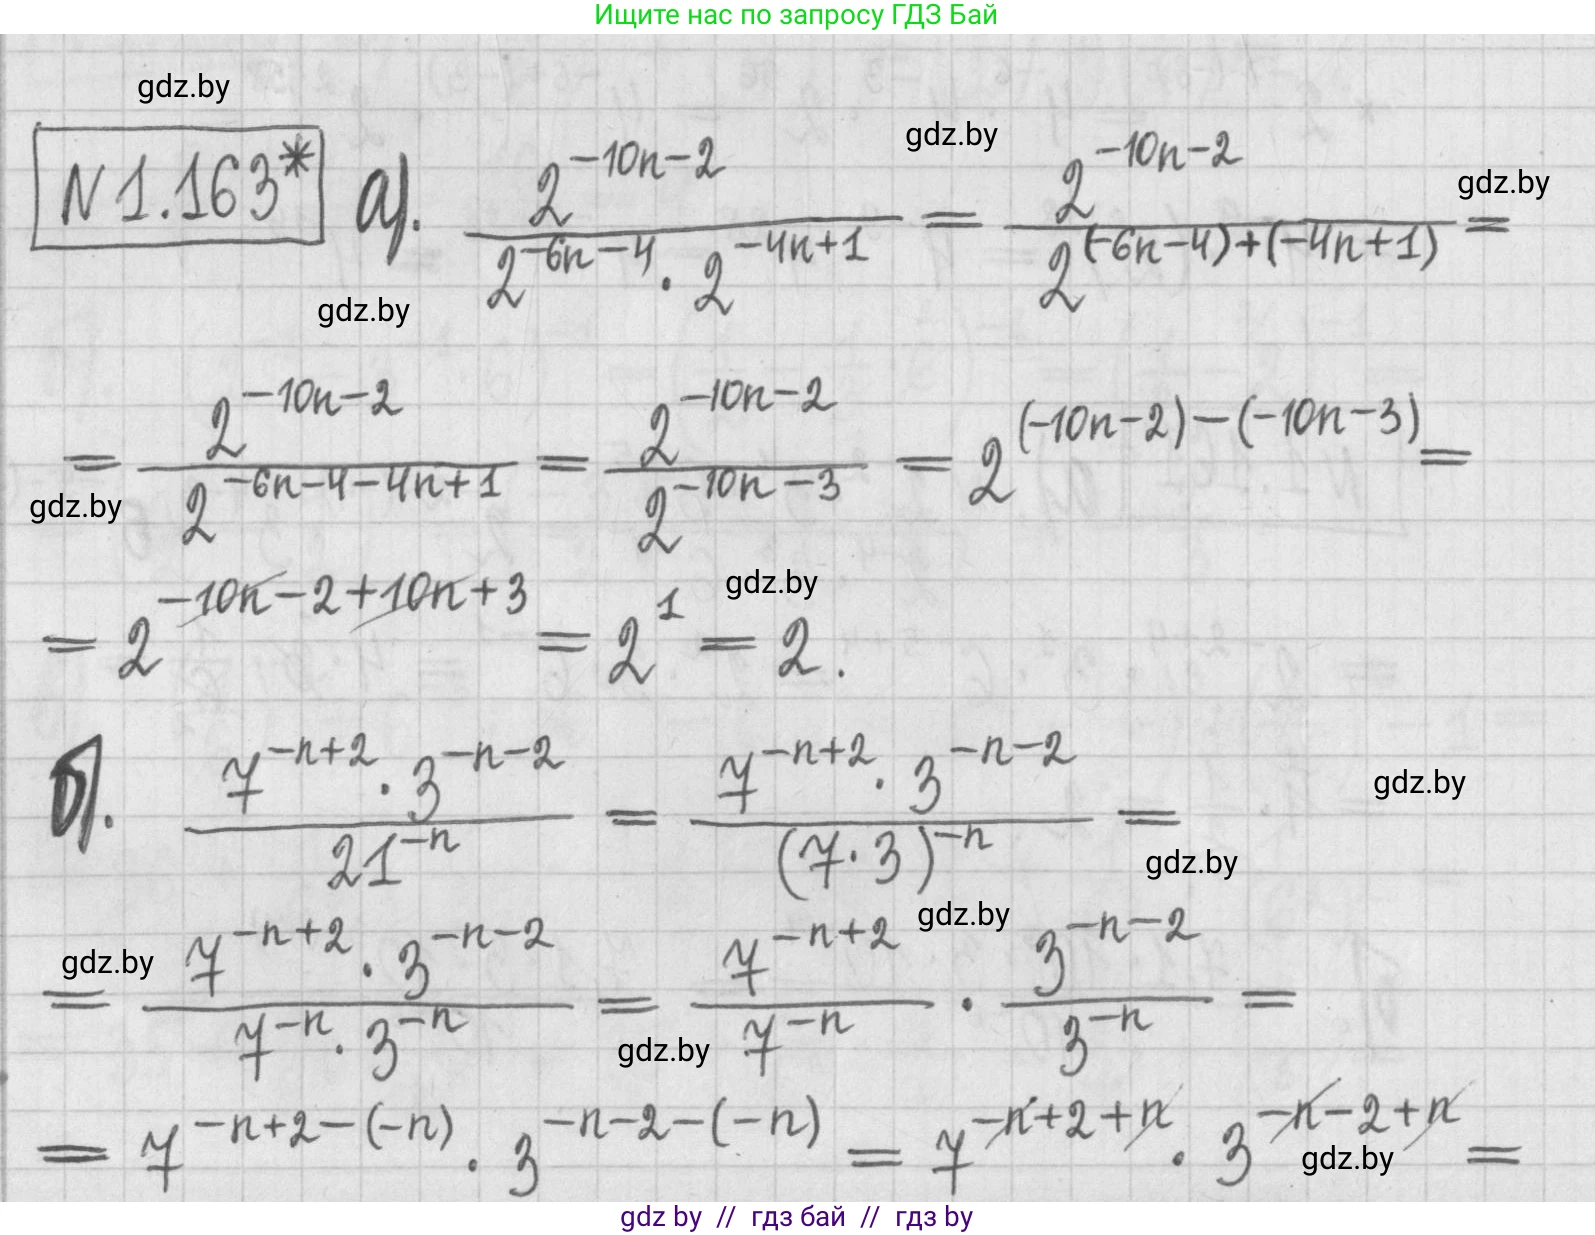 Ищите нас по запросу ГДЗ Бай
gdz.by
gdz.by
gdz.by
N 1.163* а). \frac{2^{-10n-2}}{2^{-6n-4} · 2^{-4n+1}} = \frac{2^{-10n-2}}{2^{(-6n-4)+(-4n+1)}} =
gdz.by
= \frac{2^{-10n-2}}{2^{-6n-4-4n+1}} = \frac{2^{-10n-2}}{2^{-10n-3}} = 2^{(-10n-2)-(-10n-3)} =
gdz.by
= 2^{-10n-2+10n+3} = 2^1 = 2.
gdz.by
б). \frac{7^{-n+2} · 3^{-n-2}}{21^{-n}} = \frac{7^{-n+2} · 3^{-n-2}}{(7·3)^{-n}} =
gdz.by
gdz.by
gdz.by
gdz.by
= \frac{7^{-n+2} · 3^{-n-2}}{7^{-n} · 3^{-n}} = \frac{7^{-n+2}}{7^{-n}} · \frac{3^{-n-2}}{3^{-n}} =
gdz.by
= 7^{-n+2-(-n)} · 3^{-n-2-(-n)} = 7^{-n+2+n} · 3^{-n-2+n} =
gdz.by
gdz by // гдз бай // гдз by